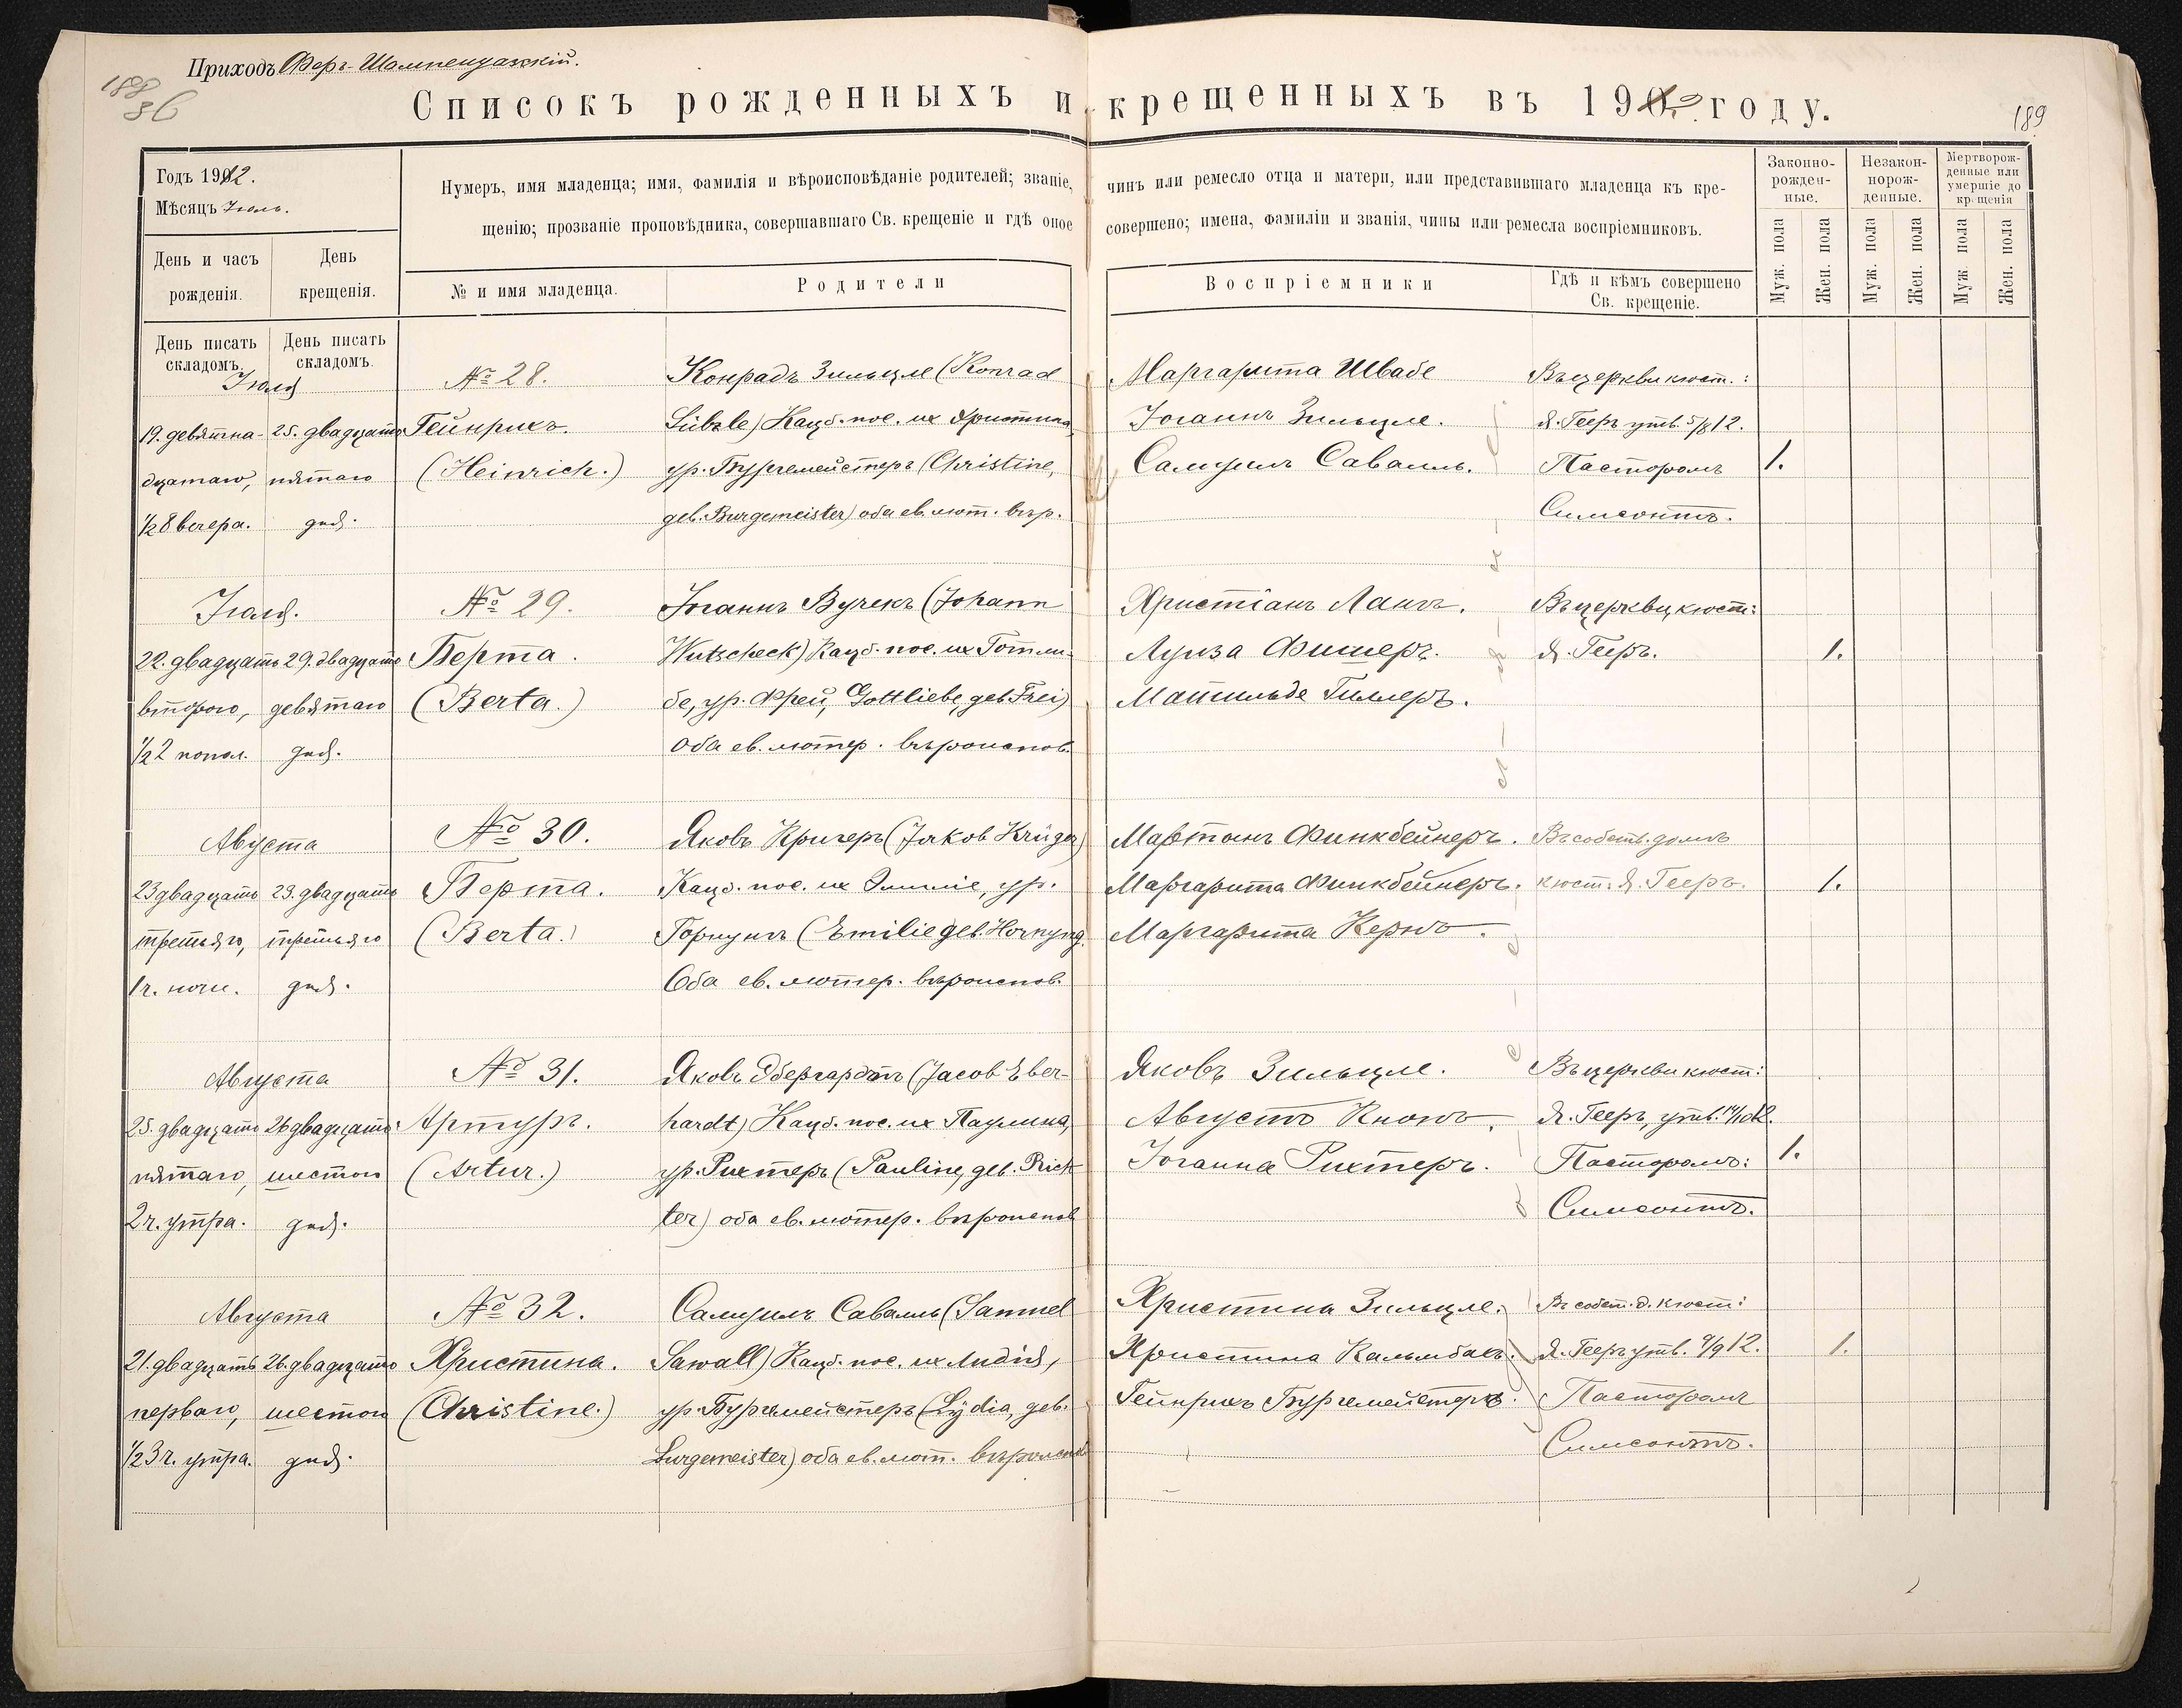 Приходъ Фер-Шампенуазскій.
188
36
Списокъ рожденныхъ и крещенныхъ въ 1912 году.
189
Годъ 1912.
Мѣсяцъ Іюль.
День и часъ рожденія.
День крещенія.
Нумеръ, имя младенца; имя, фамилія и вѣроисповѣданіе родителей; званіе, чинъ или ремесло отца и матери, или представившаго младенца къ кре-
щенію; прозваніе проповѣдника, совершавшаго Св. крещеніе и гдѣ оное совершено; имена, фамиліи и званія, чины или ремесла воспріемниковъ.
№ и имя младенца.
Родители
Воспріемники
Гдѣ и кѣмъ совершено
Св. крещеніе.
Законно-
рожден-
ные.
Незакон-
норож-
денные.
Мертворож-
денные или
умершіе до
крещенія
Муж. пола
Жен. пола
Муж. пола
Жен. пола
Муж. пола
Жен. пола
День писать
складомъ.
День писать
складомъ.
Іюля
19. девятна-
дцатаго,
1/2 8 вечера.
25. двадцать
пятаго
дня.
№ 28.
Гейнрихъ.
(Heinrich.)
Конрадъ Зильцле (Konrad
Sülzle) Кацб. пос. их Христина,
ур. Бургемейстеръ (Christine,
geb. Burgemeister) оба ев. лют. вѣр.
Маргарита Швабе
Іоганнъ Зильцле.
Самуилъ Савалль.
Въ церкви кюст.:
Я. Гееръ утв. 5/8 12.
Пасторомъ
Симсонъ.
1.
Іюля.
22. двадцать
второго,
1/2 2 попол.
29. двадцать
девятаго
дня.
№ 29.
Берта.
(Berta.)
Іоганнъ Вучекъ (Johann
Wutscheck) Кацб. пос. их Готли-
бе, ур. Фрей, Gottliebe, geb Frei)
Оба ев. лютер. вѣроиспов.
Христіанъ Лангъ.
Луиза Фишеръ.
Матильде Гиллеръ.
Въ церкви, кюст:
Я. Гееръ.
1.
Августа
23 двадцать
третьяго,
1 ч. ночи.
23. двадцать
третьяго
дня.
№ 30.
Берта.
(Berta.)
Яковъ Кригеръ (Jakob Krüger)
Кацб. пос. их Эмиліе, ур.
Горнунгъ (Emilie geb. Hornung.
Оба ев. лютер. вѣроиспов.
Мартанъ Финкбейнеръ.
Маргарита Финкбейнеръ.
Маргарита Кернъ.
Въ собств. домѣ
кюст: Я. Гееръ.
1.
Августа
25. двадцать
пятаго,
2 ч. утра.
26 двадцать
шестого
дня.
№ 31.
Артуръ.
(Artur.)
Яковъ Эбергардтъ (Jacob Eber-
hardt) Кацб. пос. их Паулина,
ур. Рихтеръ (Pauline, geb. Rich
ter) оба ев. лютер. вѣроиспов
Яковъ Зильцле.
Августъ Кнопъ.
Іоганна Рихтеръ.
Въ церкви кюст:
Я. Гееръ, утв.
Пасторомъ:
Симсонъ.
1.
Августа
21. двадцать
перваго,
1/2 3 ч. утра.
26. двадцать
шестого
дня.
№ 32.
Христина.
(Christine.)
Самуилъ Савалль (Samuel
Sawall) Кацб. пос. их Лидія,
ур. Бургемейстеръ (Lydia, geb.
Burgemeister) оба ев. лют. вѣроиспов
Христина Зильцле.
Христина Кальмбахъ.
Гейнрихъ Бургемейстеръ.
Въ собст. д. кюст:
Я. Гееръ утв. 9/9 12.
Пасторомъ
Симсонъ.
1.